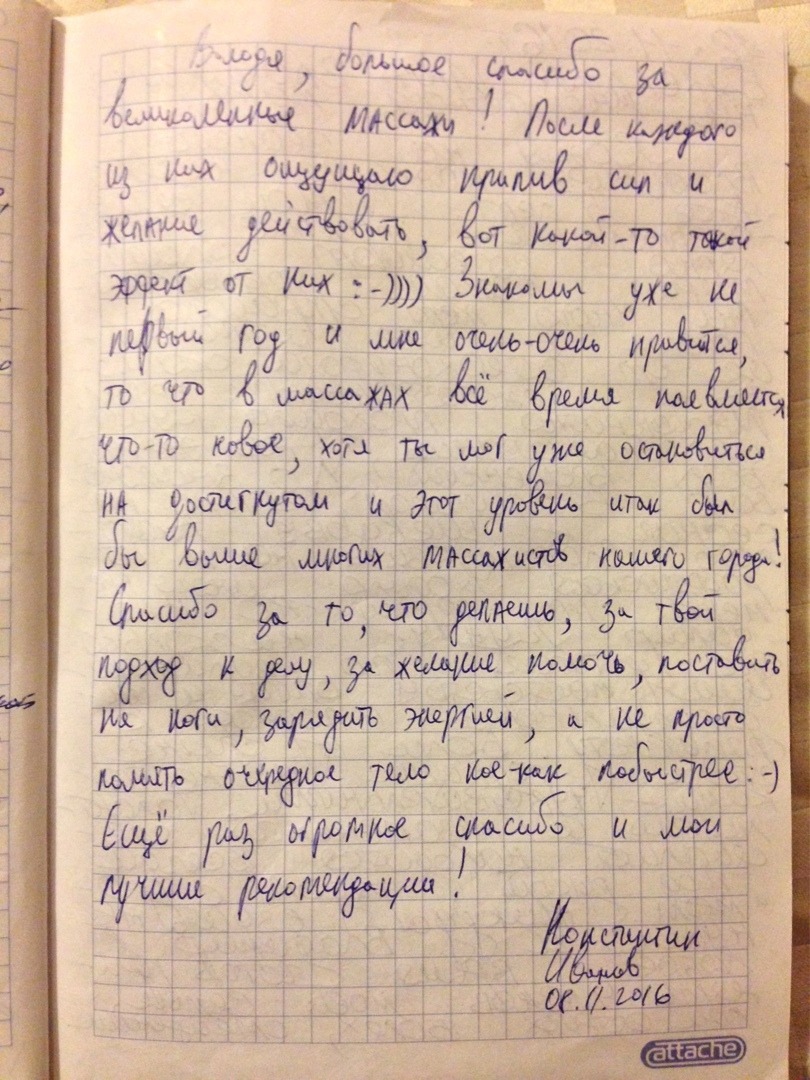 Володя, большое спасибо за
великоленные массажи! После каждого
из них ощущаю прилив сил и
желание действовать, вот какой-то такой
эффект от них :-)))) Знакомы уже не
первый год и мне очень-очень нравится,
то что в массажах всё время появляется
что-то новое, хотя ты мог уже остановиться
на достигнутом и этот уровень итак был
бы выше многих массажистов нашего города!
Спасибо за то, что делаешь, за твой
подход к делу, за желание помочь, поставить
на ноги, зарядить энергией, а не просто
помять очередное тело кое-как побыстрее :-)
Ещё раз огромное спасибо и мои
лучшие рекомендации!
Константин
Иванов
08.11.2016
attache